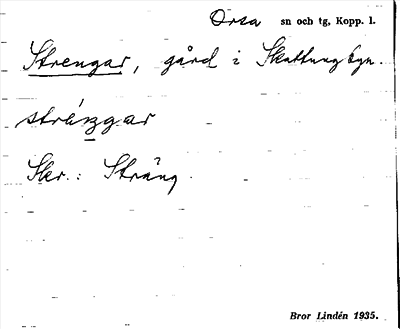 Orsa sn och tg, Kopp. l.
Strengar, gård i Skattungbyn.
stréŋgar
Skr.: Sträng
Bror Lindén 1935.